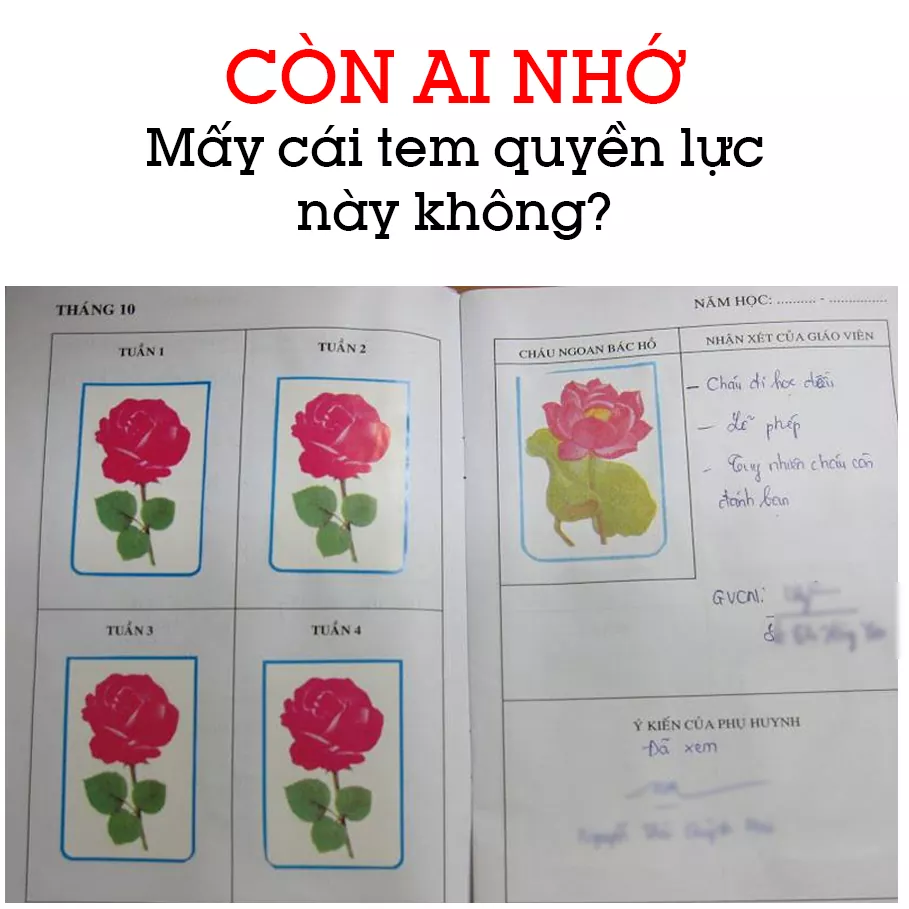 CÒN AI NHỚ
Mấy cái tem quyền lực
này không?
THÁNG 10
TUẦN 1
TUẦN 2
TUẦN 3
TUẦN 4
NĂM HỌC: .......... - ...............
CHÁU NGOAN BÁC HỒ
NHẬN XÉT CỦA GIÁO VIÊN
- Cháu đi học đều
- Lễ phép
- Tuy nhiên cháu còn
đánh bạn
GVCN:
Ý KIẾN CỦA PHỤ HUYNH
Đã xem